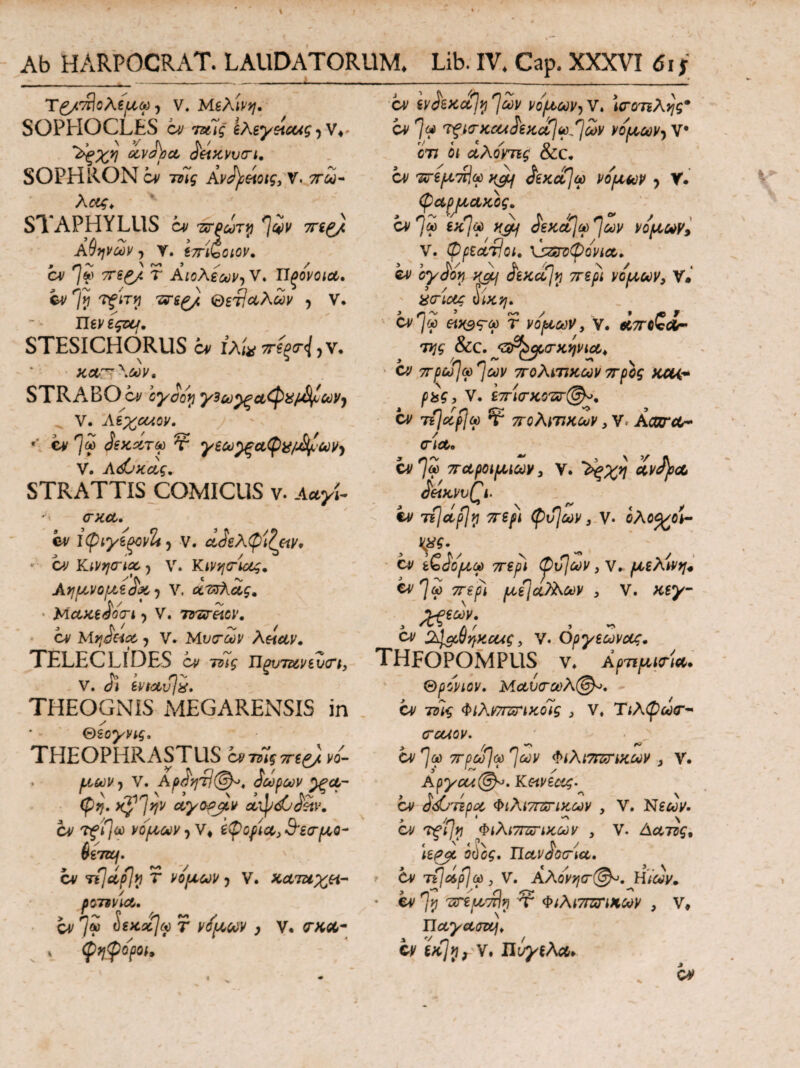 Ab HARPOCRAT. LAUDATORUM. Lib. IV. Cap. XXXVI 615
Τριπτολέμῳ, V. Μελίνη.
SOPHOCLES ἐν ταῖς ἐλεγείαις, V.
Ἀρχὴ ἄνδρα δείκνυσι.
SOPHRON ἐν τοῖς Ἀνδρείοις, V. πώ-
λας.
STAPHYLUS ἐν πρώτῃ τῶν περὶ
Ἀθηνῶν, V. ἐπίβοιον.
ἐν τῷ περὶ τ Αἰολέων, V. Πρόνοια.
ἐν τῇ τρίτῃ περὶ Θετταλῶν, V.
Πενέσται.
STESICHORUS ἐν ἰλίου πέρσει, V.
καθελῶν.
STRABO ἐν ὀγδόῃ γεωγραφουμένων,
V. Λέχαιον.
ἐν τῷ δεκάτῳ τ γεωγραφουμένων,
V. Λευκάς.
STRATTIS COMICUS V. Λαγί-
σκα.
ἐν ἰφιγέροντι, V. ἀδελφίζειν.
ἐν Κινησίᾳ, V. Κινησίας.
Λημνομέδᾳ, V. ἁπλᾶς.
Μακεδόσι, V. τοπεῖον.
ἐν Μηδείᾳ, V. Μυσῶν λείαν.
TELECLIDES ἐν τοῖς Πρυτανεῦσι,
V. δι ἐνιαυτοῦ.
THEOGNIS MEGARENSIS in
Θέογνις.
THEOPHRASTUS ἐν τοῖς περὶ νό-
μων, V. Ἀρδηττος. δώρων γρα-
φή. κατ τὴν ἀγορὰν ἀψευδεῖν.
ἐν τρίτῳ νόμων, V. ἐφορία, θεσμο-
θέται.
ἐν τετάρτῃ τ νόμων, V. καταχει-
ροτονία.
ἐν τῷ δεκάτῳ τ νόμων, V. σκα-
φηφόροι.
ἐν ἑνδεκάτῃ τῶν νόμων, V. ἰσοτελής.
ἐν τῷ τρισκαιδεκάτῳ τῶν νόμων, V.
ὅτι οἱ ἁλόντες &c.
ἐν πέμπτῳ καὶ δεκάτῳ νόμων, V.
φαρμακός.
ἐν τῷ ἕκτῳ καὶ δεκάτῳ τῶν νόμων,
V. φρεάττοι. ὑποφόνια.
ἐν ὀγδόῃ καὶ δεκάτῃ περὶ νόμων, V.
οὐσίας δίκη.
ἐν τῷ εἰκοστῷ τ νόμων, V. ἀποβά-
της &c. παρασκήνια.
ἐν πρώτῳ τῶν πολιτικῶν πρὸς και-
ρούς, V. ἐπίσκοπος.
ἐν τετάρτῳ τ πολιτικῶν, V. Ἀσπα-
σία.
ἐν τῷ παροιμιῶν, V. ἀρχὴ ἄνδρα
δείκνυσι.
ἐν τετάρτῃ περὶ φυτῶν, V. ὁλοσχοί-
νους.
ἐν ἑβδόμῳ περὶ φυτῶν, V. μελίνη.
ἐν τῷ περὶ μετάλλων, V. κεγ-
χρεών.
ἐν Διαθήκαις, V. Ὀργεῶνας.
THEOPOMPUS V. Ἀρτεμισία.
Θρόνιον. Μαύσωλος.
ἐν τοῖς Φιλιππικοῖς, V. Τιλφώσ-
σαιον.
ἐν τῷ πρώτῳ τῶν Φιλιππικῶν, V.
Ἀργαῖος. Κεινέας.
ἐν δευτέρα Φιλιππικῶν, V. Νεῶν.
ἐν τρίτῃ Φιλιππικῶν, V. Δατος,
ἱερὰ ὁδός. Πανδοσία.
ἐν τετάρτῳ, V. Ἀλόνησος. Ἠϊών.
ἐν τῇ πέμπτῃ τ Φιλιππικῶν, V,
Παγασαί.
ἐν ἕκτῃ, V. Πύγελα.
ἐν